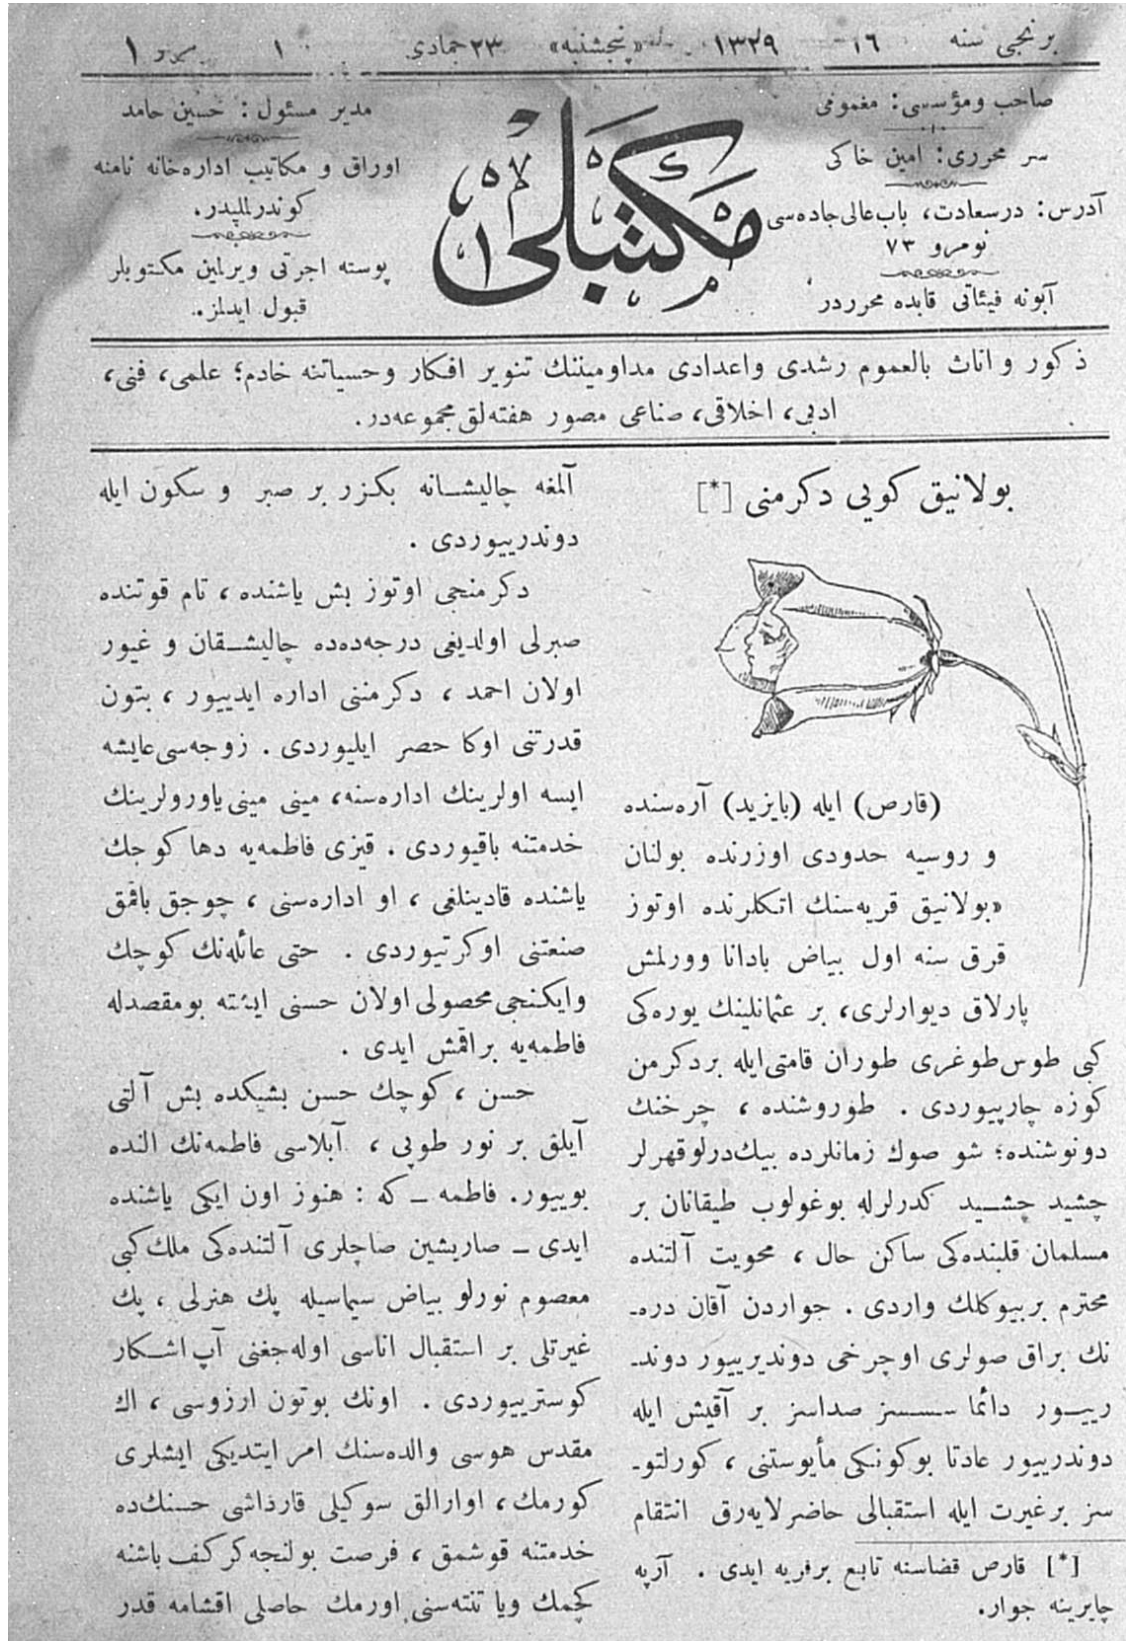 برنجی سنه ١٦ ١٣٢٩ «پنجشنبه» ٢٣ جمادی ١ ١
صاحب ومؤسسی: مغمومی
سر محرری: امین خاکی
آدرس: درسعادت، باب عالی جاده‌سی
نومرو ٧٣
آبونه فیئاتی قابده محرردر
مکتبلی
مدیر مسئول: حسین حامد
اوراق و مکاتیب اداره‌خانه نامنه
کوندرلملیدر.
پوسته اجرتی ویرلمین مکتوبلر
قبول ایدلمز.
ذکور و اناث بالعموم رشدی واعدادی مداومیننك تنویر افکار وحسیاتنه خادم؛ علمی، فنی،
ادبی، اخلاقی، صناعی مصور هفته‌لق مجموعه‌در.
بولانیق کویی دکرمنی [*]
(قارص) ایله (بایزید) آره‌سنده
و روسیه حدودی اوزرنده بولنان
«بولانیق قریه‌سنك اتکلرنده اوتوز
قرق سنه اول بیاض بادانا وورلمش
پارلاق دیوارلری، بر عثمانلینك یوره‌کی
کبی طوس‌طوغری طوران قامتی‌ایله بردکرمن
کوزه چارپیوردی . طوروشنده ، چرخنك
دونوشنده؛ شو صوك زمانلرده بیك‌درلوقهرلر
چشید چشید کدرلرله بوغولوب طیقانان بر
مسلمان قلبنده‌کی ساکن حال ، محویت آلتنده
محترم بربیوکلك واردی . جواردن آقان دره‌ـ
نك براق صولری اوچرخی دوندیرییور دوندـ
رییور دائما سسسز صداسز بر آقیش ایله
دوندرییور عادتا بوکونکی مأیوستنی ، کورلتوـ
سز برغیرت ایله استقبالی حاضرلایه‌رق انتقام
[*] قارص قضاسنه تابع برقریه ایدی . آرپه
چایرینه جوار.
آلمغه چالیشانه بکزر بر صبر و سکون ایله
دوندرییوردی .
دکرمنجی اوتوز بش یاشنده ، تام قوتنده
صبرلی اولدیغی درجه‌ده‌ده چالیشقان و غیور
اولان احمد ، دکرمننی اداره ایدییور ، بتون
قدرتنی اوکا حصر ایلیوردی . زوجه‌سی عایشه
ایسه اولرینك اداره‌سنه، مینی مینی یاورولرینك
خدمتنه باقیوردی . قیزی فاطمه‌یه دها کوچك
یاشنده قادینلغی ، او اداره‌سنی ، چوجق باقمق
صنعتنی اوکرتیوردی . حتی عائله‌نك کوچك
وایکنجی محصولی اولان حسنی ایشته بومقصدله
فاطمه‌یه براقمش ایدی .
حسن ، کوچك حسن بشیکده بش آلتی
آیلق بر نور طوپی ، آبلاسی فاطمه‌نك النده
بویییور. فاطمه ـ که : هنوز اون ایکی یاشنده
ایدی ـ صاریشین صاچلری آلتنده‌کی ملك کبی
معصوم نورلو بیاض سیماسیله پك هنرلی ، پك
غیرتلی بر استقبال اناسی اوله‌جغنی آپ اشکار
کوسترییوردی . اونك بوتون ارزوسی ، اك
مقدس هوسی والده‌سنك امر ایتدیکی ایشلری
کورمك ، اوارالق سوکیلی قارذاشی حسنك‌ده
خدمتنه قوشمق ، فرصت بولنجه کرکف باشنه
کچمك ویا تنته‌سنی اورمك حاصلی اقشامه قدر